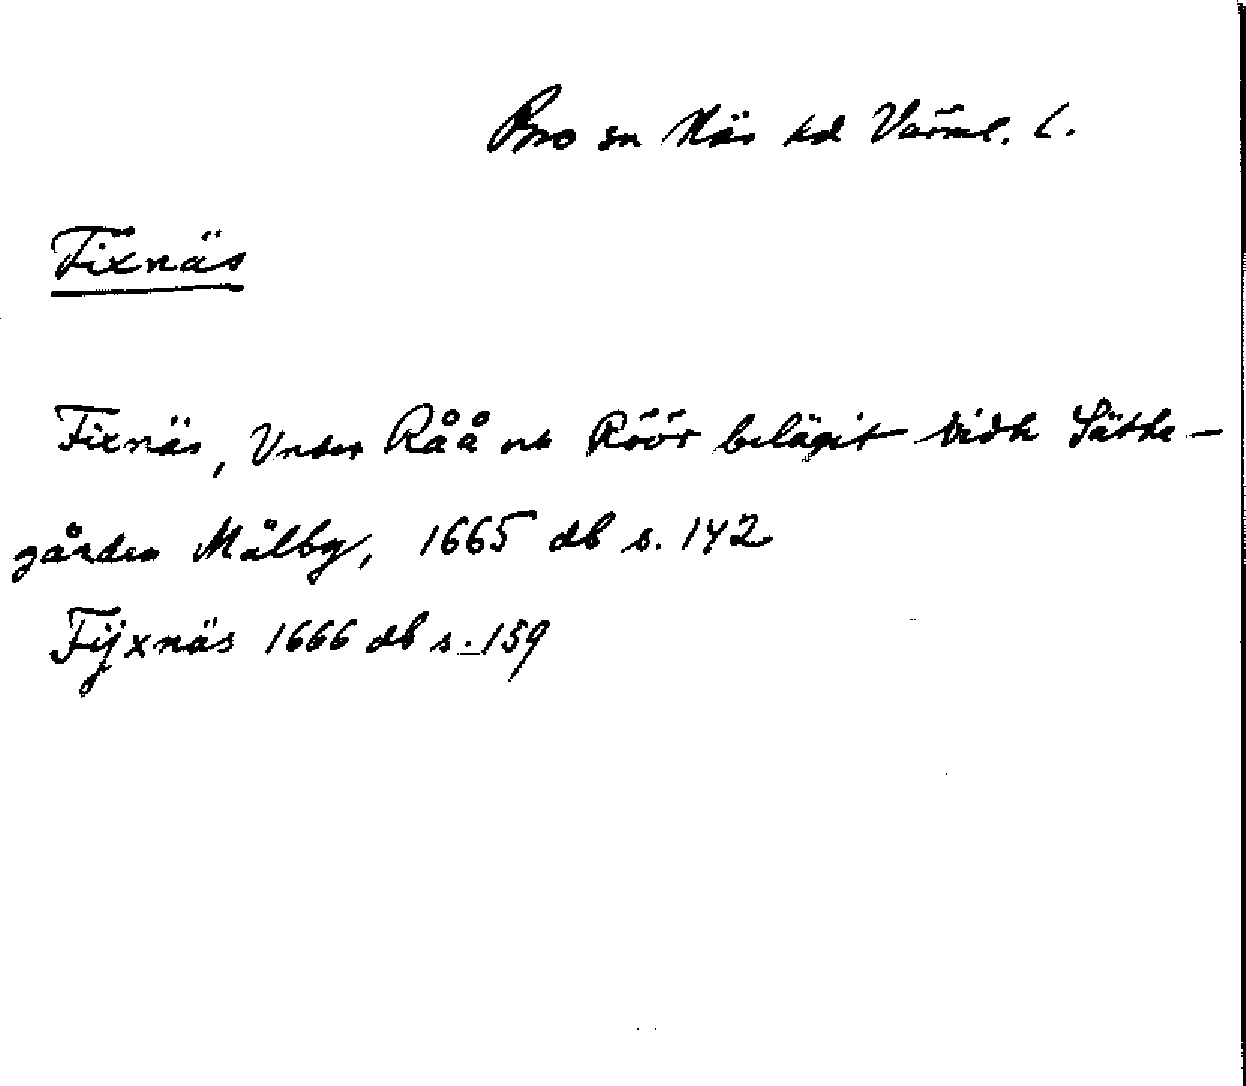 Bro sn Näs hd Värml. l.
Fixnäs
Fixnäs, Under Råå och Röör belägit Vidh Säthe-
gården Målby, 1665 db s. 142
Fijxnäs 1666 db s. 159